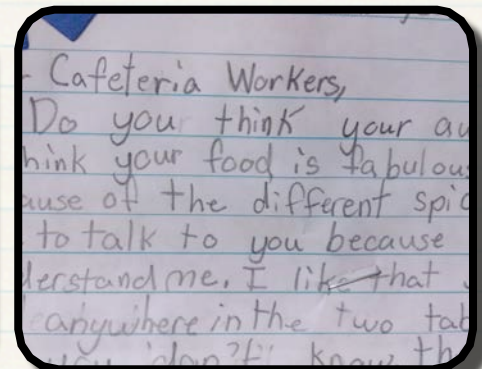 Cafeteria Workers,
Do you think your
think your food is fabulous
ause of the different
to talk to you because
derstand me. I like that
anywhere in the two
you don't know